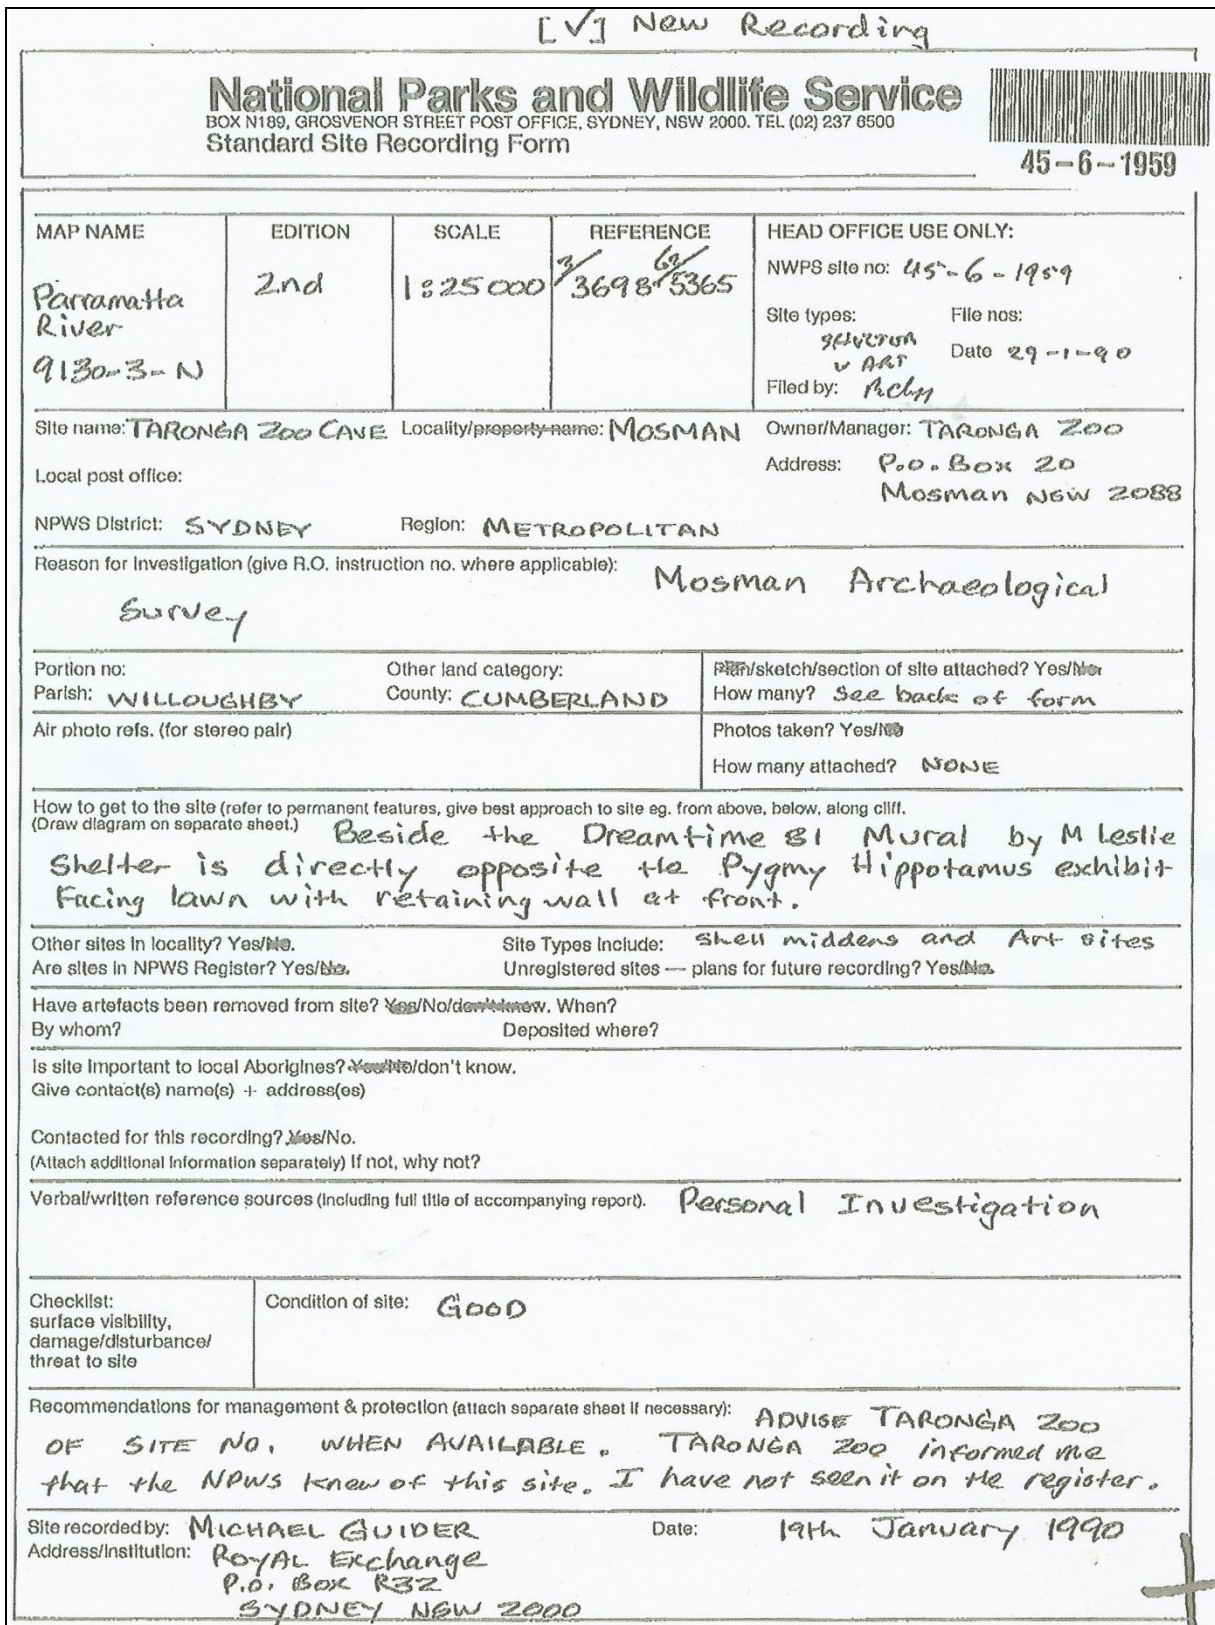 [√] New Recording
National Parks and Wildlife Service
BOX N189, GROSVENOR STREET POST OFFICE, SYDNEY, NSW 2000. TEL (02) 237 6500
Standard Site Recording Form
45-6-1959
MAP NAME EDITION SCALE REFERENCE HEAD OFFICE USE ONLY:
Parramatta River 9130-3-N 2nd 1:25000 3/3698 62/5365
NWPS site no: 45-6-1959
Site types: File nos:
ART Date 29-1-90
Filed by:
Site name: TARONGA ZOO CAVE Locality/property name: MOSMAN Owner/Manager: TARONGA ZOO
Local post office: Address: P.O. Box 20
Mosman NSW 2088
NPWS District: SYDNEY Region: METROPOLITAN
Reason for Investigation (give R.O. instruction no. where applicable): Mosman Archaeological
Survey
Portion no: Other land category: Plan/sketch/section of site attached? Yes/No
Parish: WILLOUGHBY County: CUMBERLAND How many? See back of form
Air photo refs. (for stereo pair) Photos taken? Yes/No
How many attached? NONE
How to get to the site (refer to permanent features, give best approach to site eg. from above, below, along cliff.
(Draw diagram on separate sheet.) Beside the Dreamtime 81 Mural by M Leslie
Shelter is directly opposite the Pygmy Hippotamus exhibit
Facing lawn with retaining wall at front.
Other sites in locality? Yes/No. Site Types Include: Shell middens and Art sites
Are sites in NPWS Register? Yes/No. Unregistered sites — plans for future recording? Yes/No.
Have artefacts been removed from site? Yes/No/don't know. When?
By whom? Deposited where?
Is site important to local Aborigines? Yes/No/don't know.
Give contact(s) name(s) + address(es)
Contacted for this recording? Yes/No.
(Attach additional information separately) If not, why not?
Verbal/written reference sources (including full title of accompanying report). Personal Investigation
Checklist: Condition of site: GOOD
surface visibility,
damage/disturbance/
threat to site
Recommendations for management & protection (attach separate sheet if necessary): ADVISE TARONGA ZOO
OF SITE NO. WHEN AVAILABLE. TARONGA ZOO informed me
that the NPWS knew of this site. I have not seen it on the register.
Site recorded by: MICHAEL GUIDER Date: 19th January 1990
Address/Institution: ROYAL Exchange
P.O. Box R32
SYDNEY NSW 2000